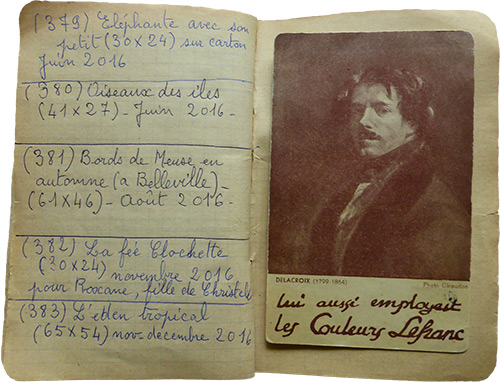 (379) Eléphante avec son
petit (30x24) sur carton
Juin 2016
(380) Oiseaux des iles
(41x27) - Juin 2016 -
(381) Bords de Meuse en
automne (a Belleville) -
(61x46) - Août 2016 -
(382) La feé Clochette
(30x24) novembre 2016
pour Roxane, fille de Christèle
(383) L'eden tropical
(65x54) nov. decembre 2016
DELACROIX (1799-1864)
Photo Giraudon
lui aussi employait
les Couleurs Lefranc